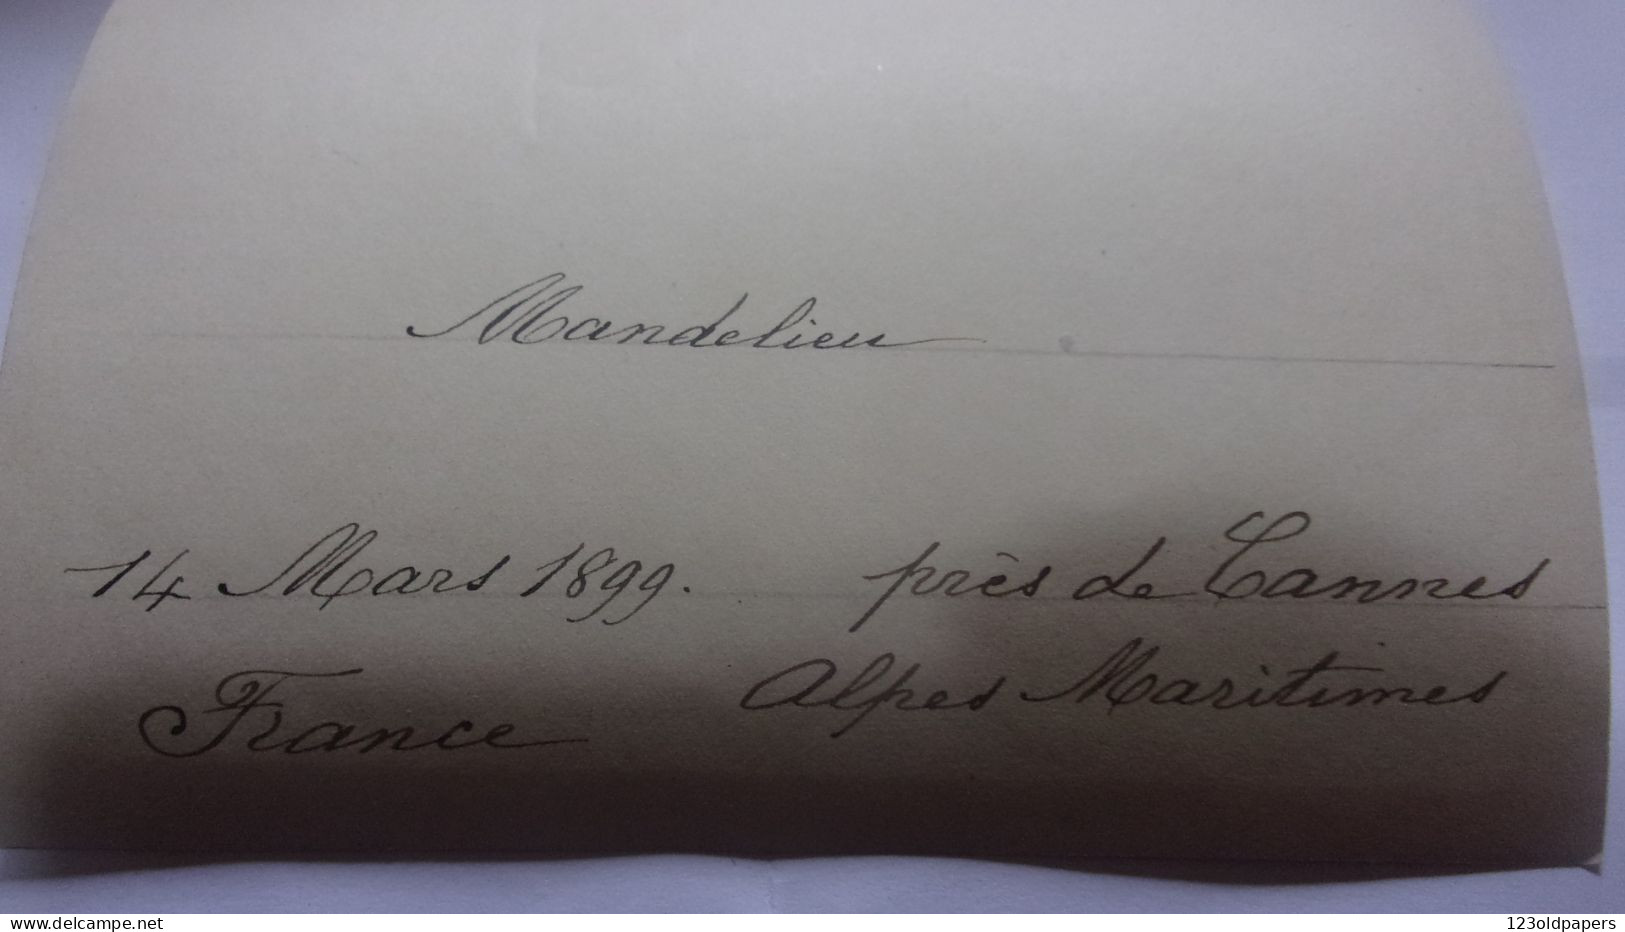 Mandelieu
14 Mars 1899. près de Cannes
France Alpes Maritimes
www.delcampe.net 123oldpapers